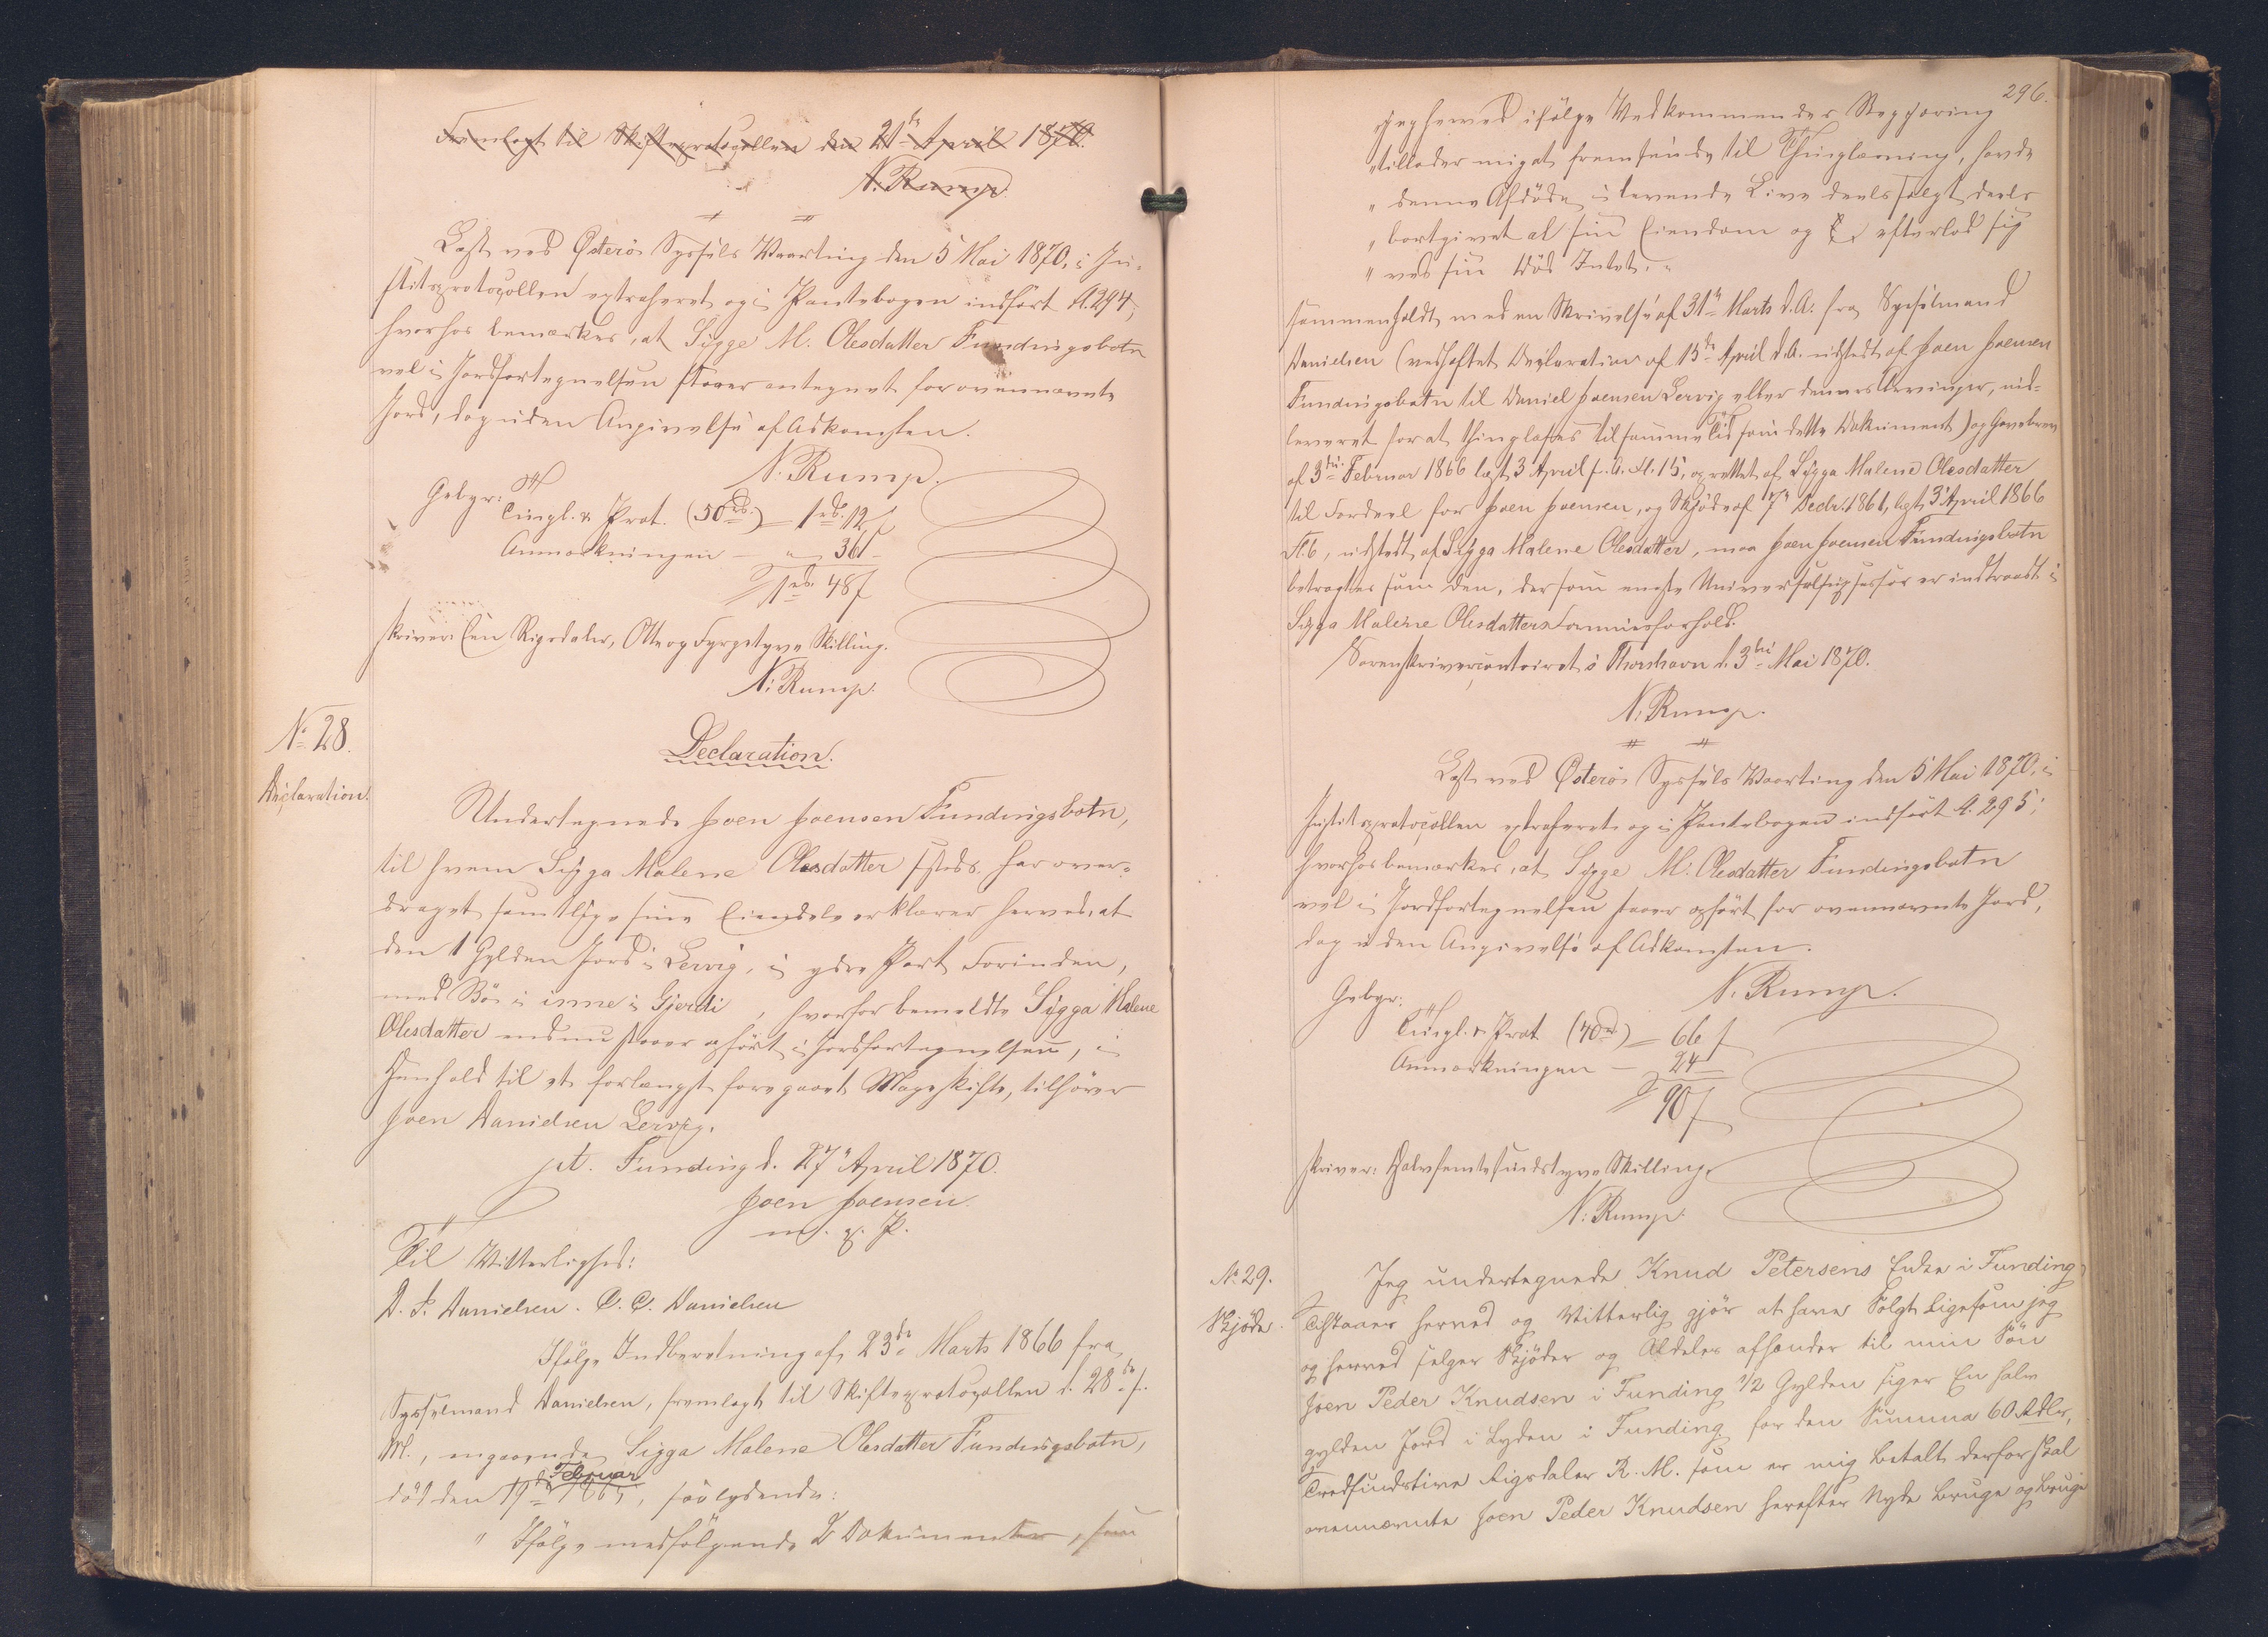 Fremlagt til Skifteprotocollen den 21de April 1870.
N. Rump.
Læst ved Østerø Syssels Vaarting den 5 Mai 1870, i Ju-
stitsprotocollen extraheret og i Pantebogen indført A. 294,
hvorhos bemærkes, at Sigge M. Olesdatter Fundingsbotn
vel i Jordfortegnelsen staaer antegnet for ovennævnte
Jord, dog uden Angivelse af Adkomsten.
N. Rump.
Gebyr:
Tingl. & Prot. (50rd.) – 1rd. 12 ſ
Anmærkningen – „ 36 –
1rd. 48 ſ
skriver: Een Rigsdaler, Otte og Fyrgetyve Skilling.
N. Rump.
No. 28.
Declaration.
Declaration.
Undertegnede Joen Joensen Fundingsbotn,
til hvem Sigga Malene Olesdatter sstds. har over-
draget samtlige sine Eiendele erklærer herved, at
den 1 Gylden Jord i Lervig, i ydre Part Forinden,
med Bø i inne i Gjerdi, hvorfor bemeldte Sigga Malene
Olesdatter endnu staaer opført i Jordfortegnelsen, i
Henhold til et forlængst foregaaet Mageskifte, tilhører
Joen Danielsen Lervig.
pt. Funding d. 27 April 1870.
Joen Joensen
m. f. P.
Til Vitterlighed:
D. J. Danielsen. C. C. Danielsen
Ifølge Indberetning af 23de Marts 1866 fra
Sysselmand Danielsen, fremlagt til Skifteprotocollen d. 28de s.
M., angaaende Sigga Malene Olesdatter Fundingsbotn,
død den 19de Februar 1865, saalydende:
„ Ifølge medfølgende 2 Dokumenter, som
296.
„jeg herved ifølge Vedkommendes Begjæring
„tillader mig at fremsende til Thinglæsning, havde
„ denne Afdøde i levende Live deels solgt deels
„ bortgivet al sin Eiendom og efterlod sig
„ ved sin Død Intet. „
sammenholdt med en Skrivelse af 31te Marts d. A. fra Sysselmand
Danielsen (vedhæftet Declaration af 13de April d. A. udstedt af Joen Joensen
Fundingsbotn til Daniel Joensen Lervig eller dennes Arvinger, ind-
leveret for at thinglæses til samme Tid som dette Dokument) og Gavebrev
af 3die Februar 1866 læst 3 April s. A. A. 15, oprettet af Sigga Malene Olesdatter
til Fordeel for Joen Joensen, og Skjøde af 7de Decbr. 1861, læst 3 April 1866
A. 6, udstedt af Sigga Malene Olesdatter, maa Joen Joensen Fundingsbotn
betragtes som den, der som eneste Universalsuccessor er indtraadt i
Sigga Malene Olesdatters Formuesforhold.
Sorenskrivercontoiret i Thorshavn d. 3die Mai 1870.
N. Rump.
Læst ved Østerø Syssels Vaarting den 5 Mai 1870, i
Justitsprotocollen extraheret og i Pantebogen indført A. 295;
hvorhos bemærkes, at Sigge M. Olesdatter Fundingsbotn
vel i Jordfortegnelsen staaer opført for ovennævnte Jord,
dog uden Angivelse af Adkomsten.
N. Rump.
Gebyr:
Tingl. & Prot (40rd.) – 66 ſ
Anmærkningen – 24
90 ſ
skriver: Halvfemtesindstyve Skilling.
N. Rump.
No. 29.
Skjøde.
Jeg undertegnede Knud Petersens Enke i Funding
Tilstaaer herved og Vitterlig gjør at have Solgt ligesom jeg
og herved selger Skjøder og Aldeles afhænder til min Søn
Joen Peder Knudsen i Funding 1/2 Gylden siger En halv
gylden Jord i Lyden i Funding for den Summa 60 Rdlr,
Tredsindstive Rigsdaler R. M. som er mig betalt derfor skal
ovennævnte Joen Peder Knudsen herefter Nyde bruge og bruge